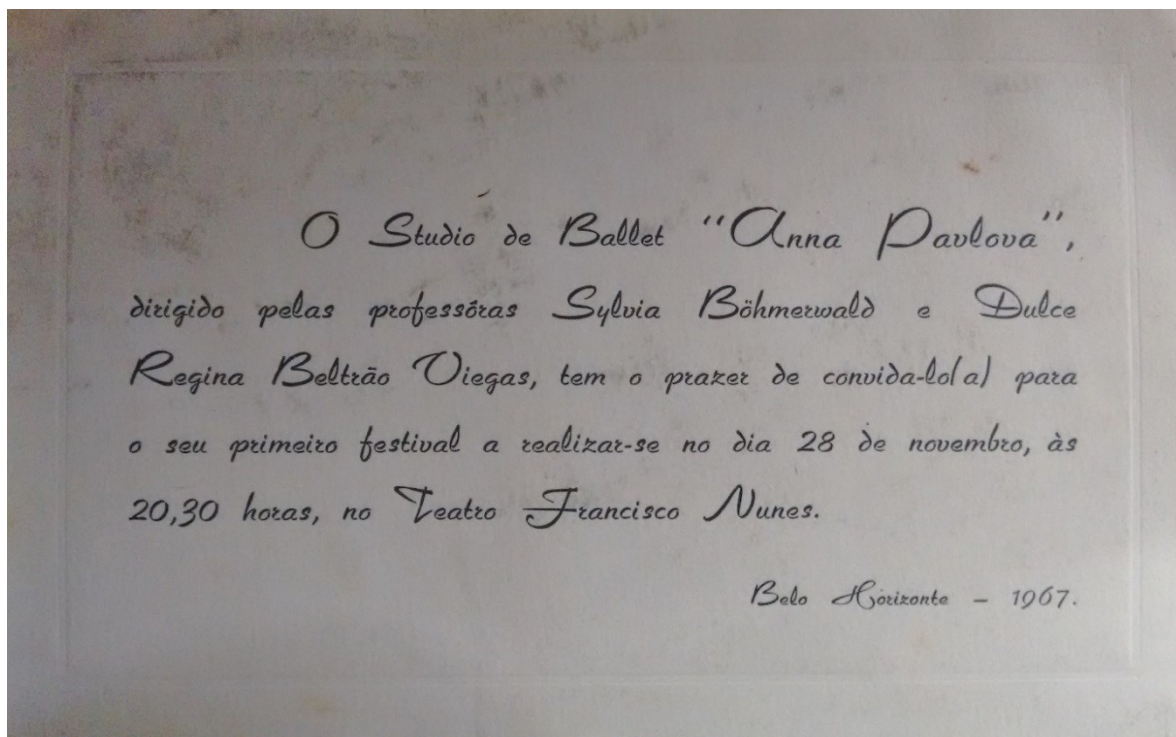 O Studio de Ballet "Anna Pavlova",
dirigido pelas professôras Sylvia Böhmerwald e Dulce
Regina Beltrão Viegas, tem o prazer de convida-lo(a) para
o seu primeiro festival a realizar-se no dia 28 de novembro, às
20,30 horas, no Teatro Francisco Nunes.
Belo Horizonte - 1967.